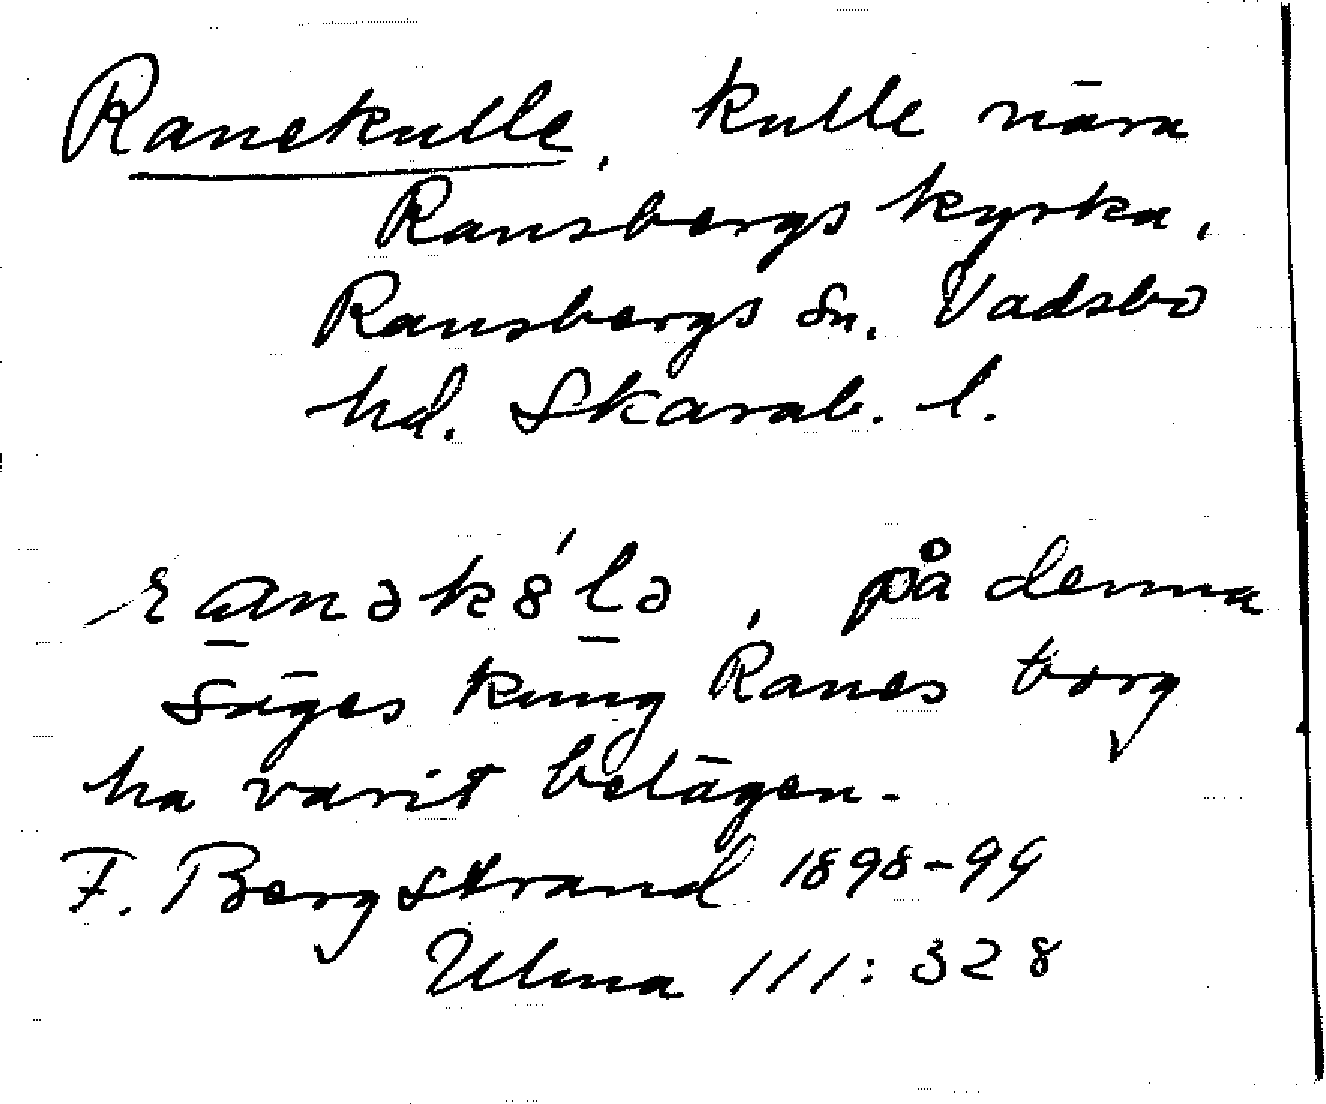 Ranekulle, kulle nära
Ransbergs kyrka,
Ransbergs sn. Vadsbo
hd. Skarab. l.
ranəkȣ́lə, på denna
säges kung Ranes borg
ha varit belägen.
F. Bergstrand 1898-99
Ulma 111:328